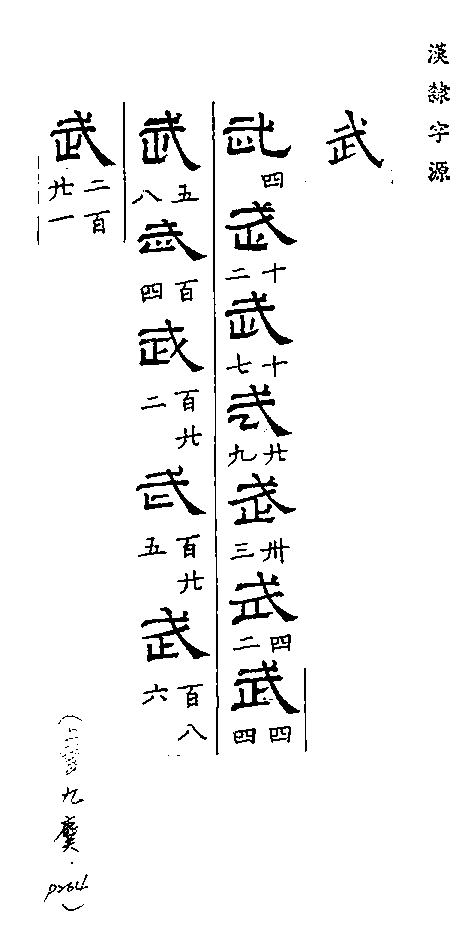 漢隸字源
武
武 四 武 十二 武 十七 武 廿九 武 卅三 武 四二 武 四四
武 五八 武 百四 武 百廿二 武 百廿五 武 百八六
武 二百廿一
(上聲九麌.p264)